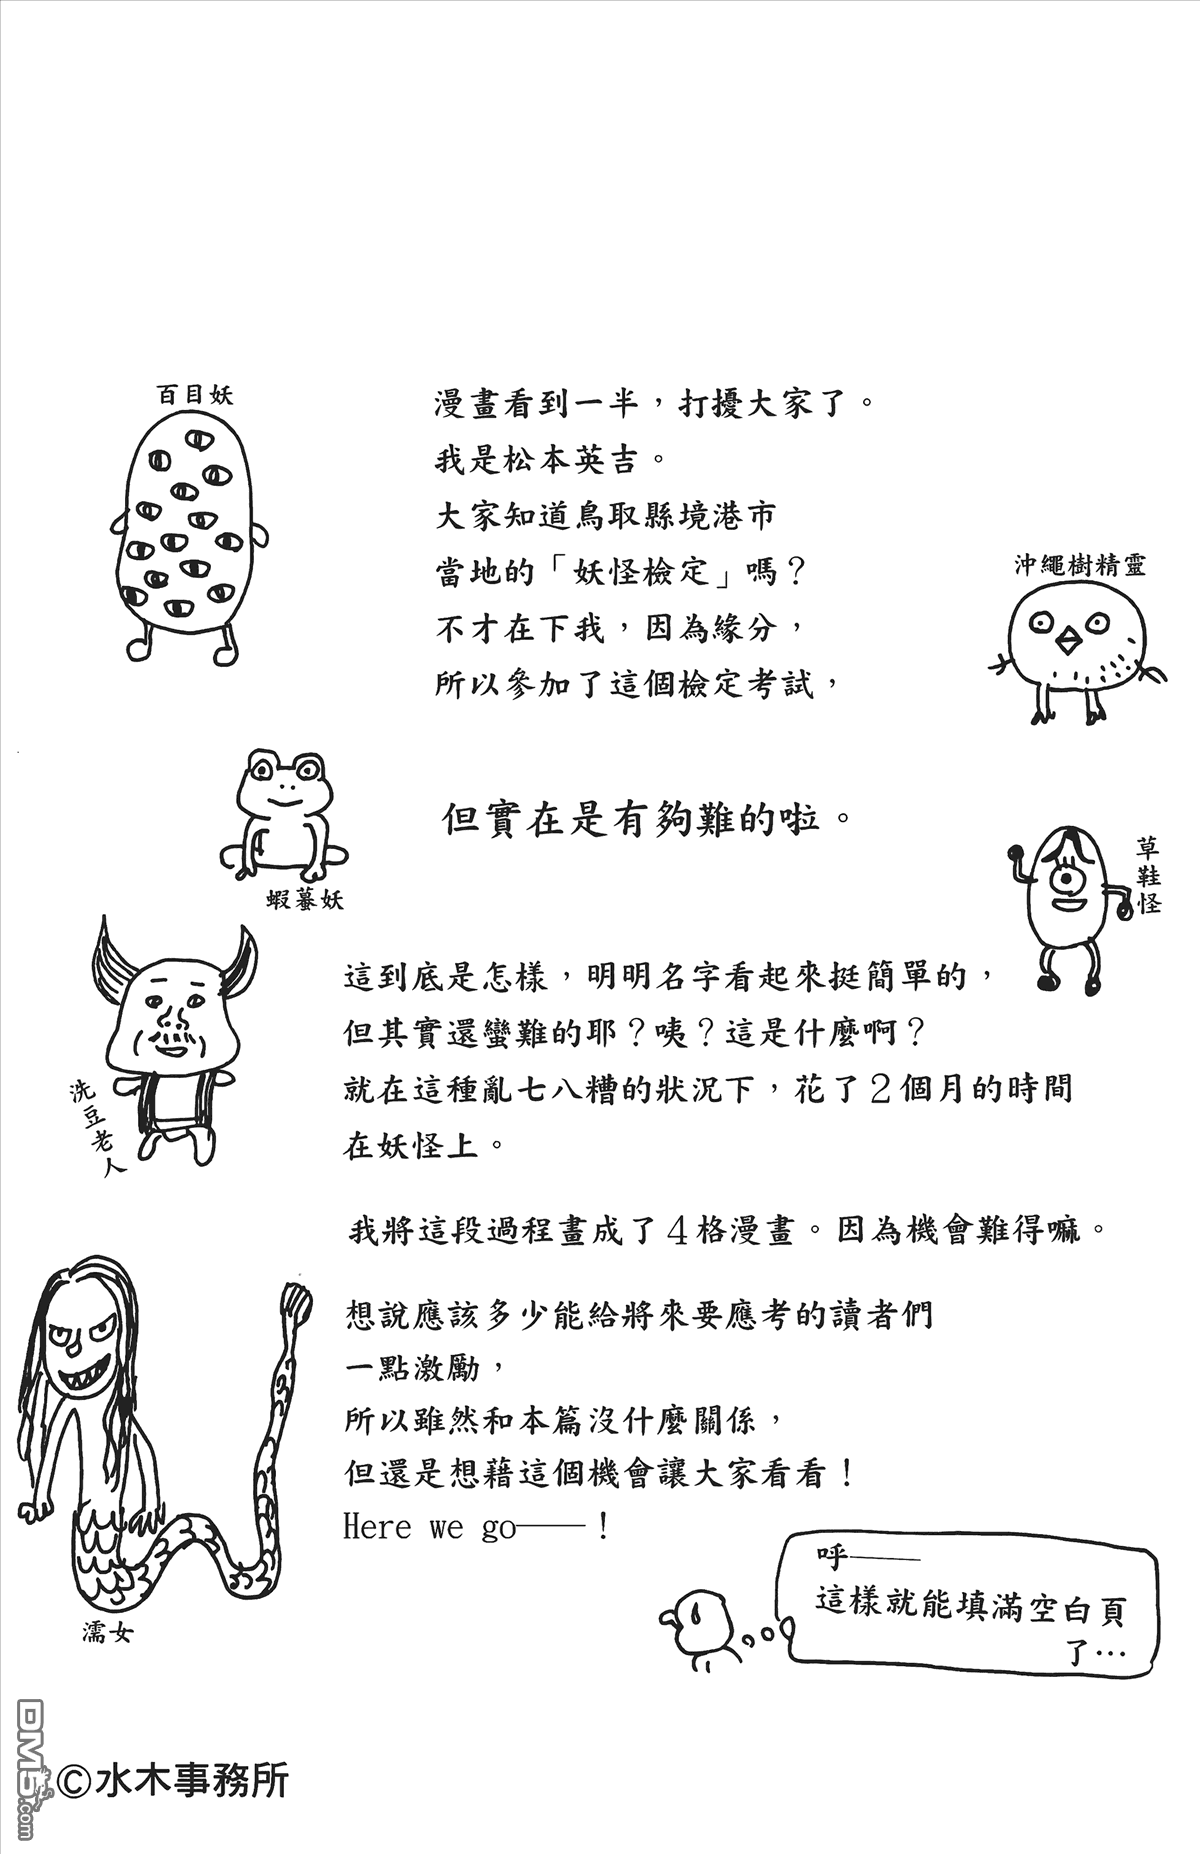 百目妖
漫畫看到一半，打擾大家了。
我是松本英吉。
大家知道鳥取縣境港市
當地的「妖怪檢定」嗎？
不才在下我，因為緣分，
所以參加了這個檢定考試，
沖繩樹精靈
但實在是有夠難的啦。
蝦蟇妖
草鞋怪
這到底是怎樣，明明名字看起來挺簡單的，
但其實還蠻難的耶？咦？這是什麼啊？
就在這種亂七八糟的狀況下，花了2個月的時間
在妖怪上。
洗豆老人
我將這段過程畫成了4格漫畫。因為機會難得嘛。
想說應該多少能給將來要應考的讀者們
一點激勵，
所以雖然和本篇沒什麼關係，
但還是想藉這個機會讓大家看看！
Here we go——！
濡女
呼——
這樣就能填滿空白頁
了…
©水木事務所
DM5.com